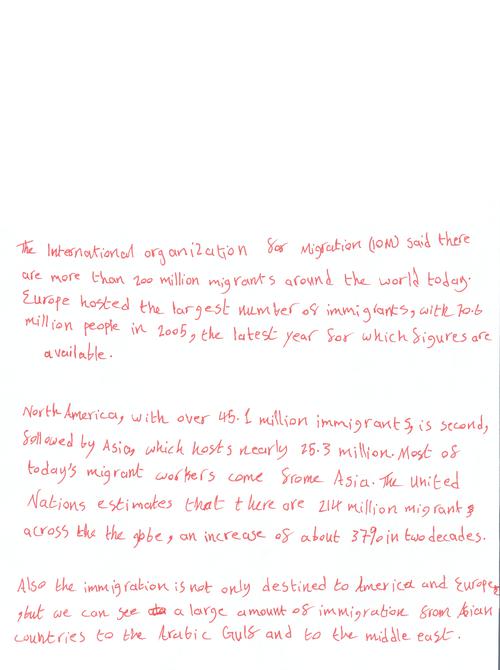 The International organization for Migration (IOM) said there
are more than 200 million migrants around the world today.
Europe hosted the largest number of immigrants, with 70.6
million people in 2005, the latest year for which figures are
available.
North America, with over 45.1 million immigrants, is second,
followed by Asia, which hosts nearly 25.3 million. Most of
today's migrant workers come frome Asia. The United
Nations estimates that there are 214 million migrants
across the the globe, an increase of about 37% in two decades.
Also the immigration is not only destined to America and Europe,
,but we can see a large amount of immigration from Asian
countries to the Arabic Gulf and to the middle east.